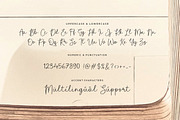 UPPERCASE & LOWERCASE
Aa Bb Cc Dd Ee Ff Gg Hh Ii Jj Kk Ll Mm Nn
Oo Pp Qq Rr Ss Tt Uu Vv Ww Xx Yy Zz
NUMERIC & PUNCTUATION
1234567890
ACCENT CHARACTERS
Multilinguäl Süpport